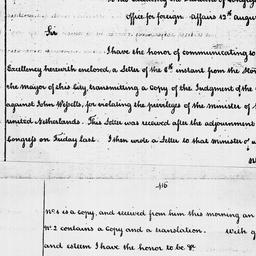 office for foreign affairs 12th august
Sir
I have the honor of communicating to
Excellency herewith enclosed, a Letter of the 8th instant from the
the mayor of this City, transmitting a Copy of the Judgment of the
against John Wessells, for violating the privileges of the minister of
united Netherlands. This Letter was received after the adjournment
Congress on Friday last. I then wrote a Letter to that Minister
416
No 1 is a copy, and received from him this morning an
No 2 contains a copy and a translation. With
and esteem I have the honor to be &c